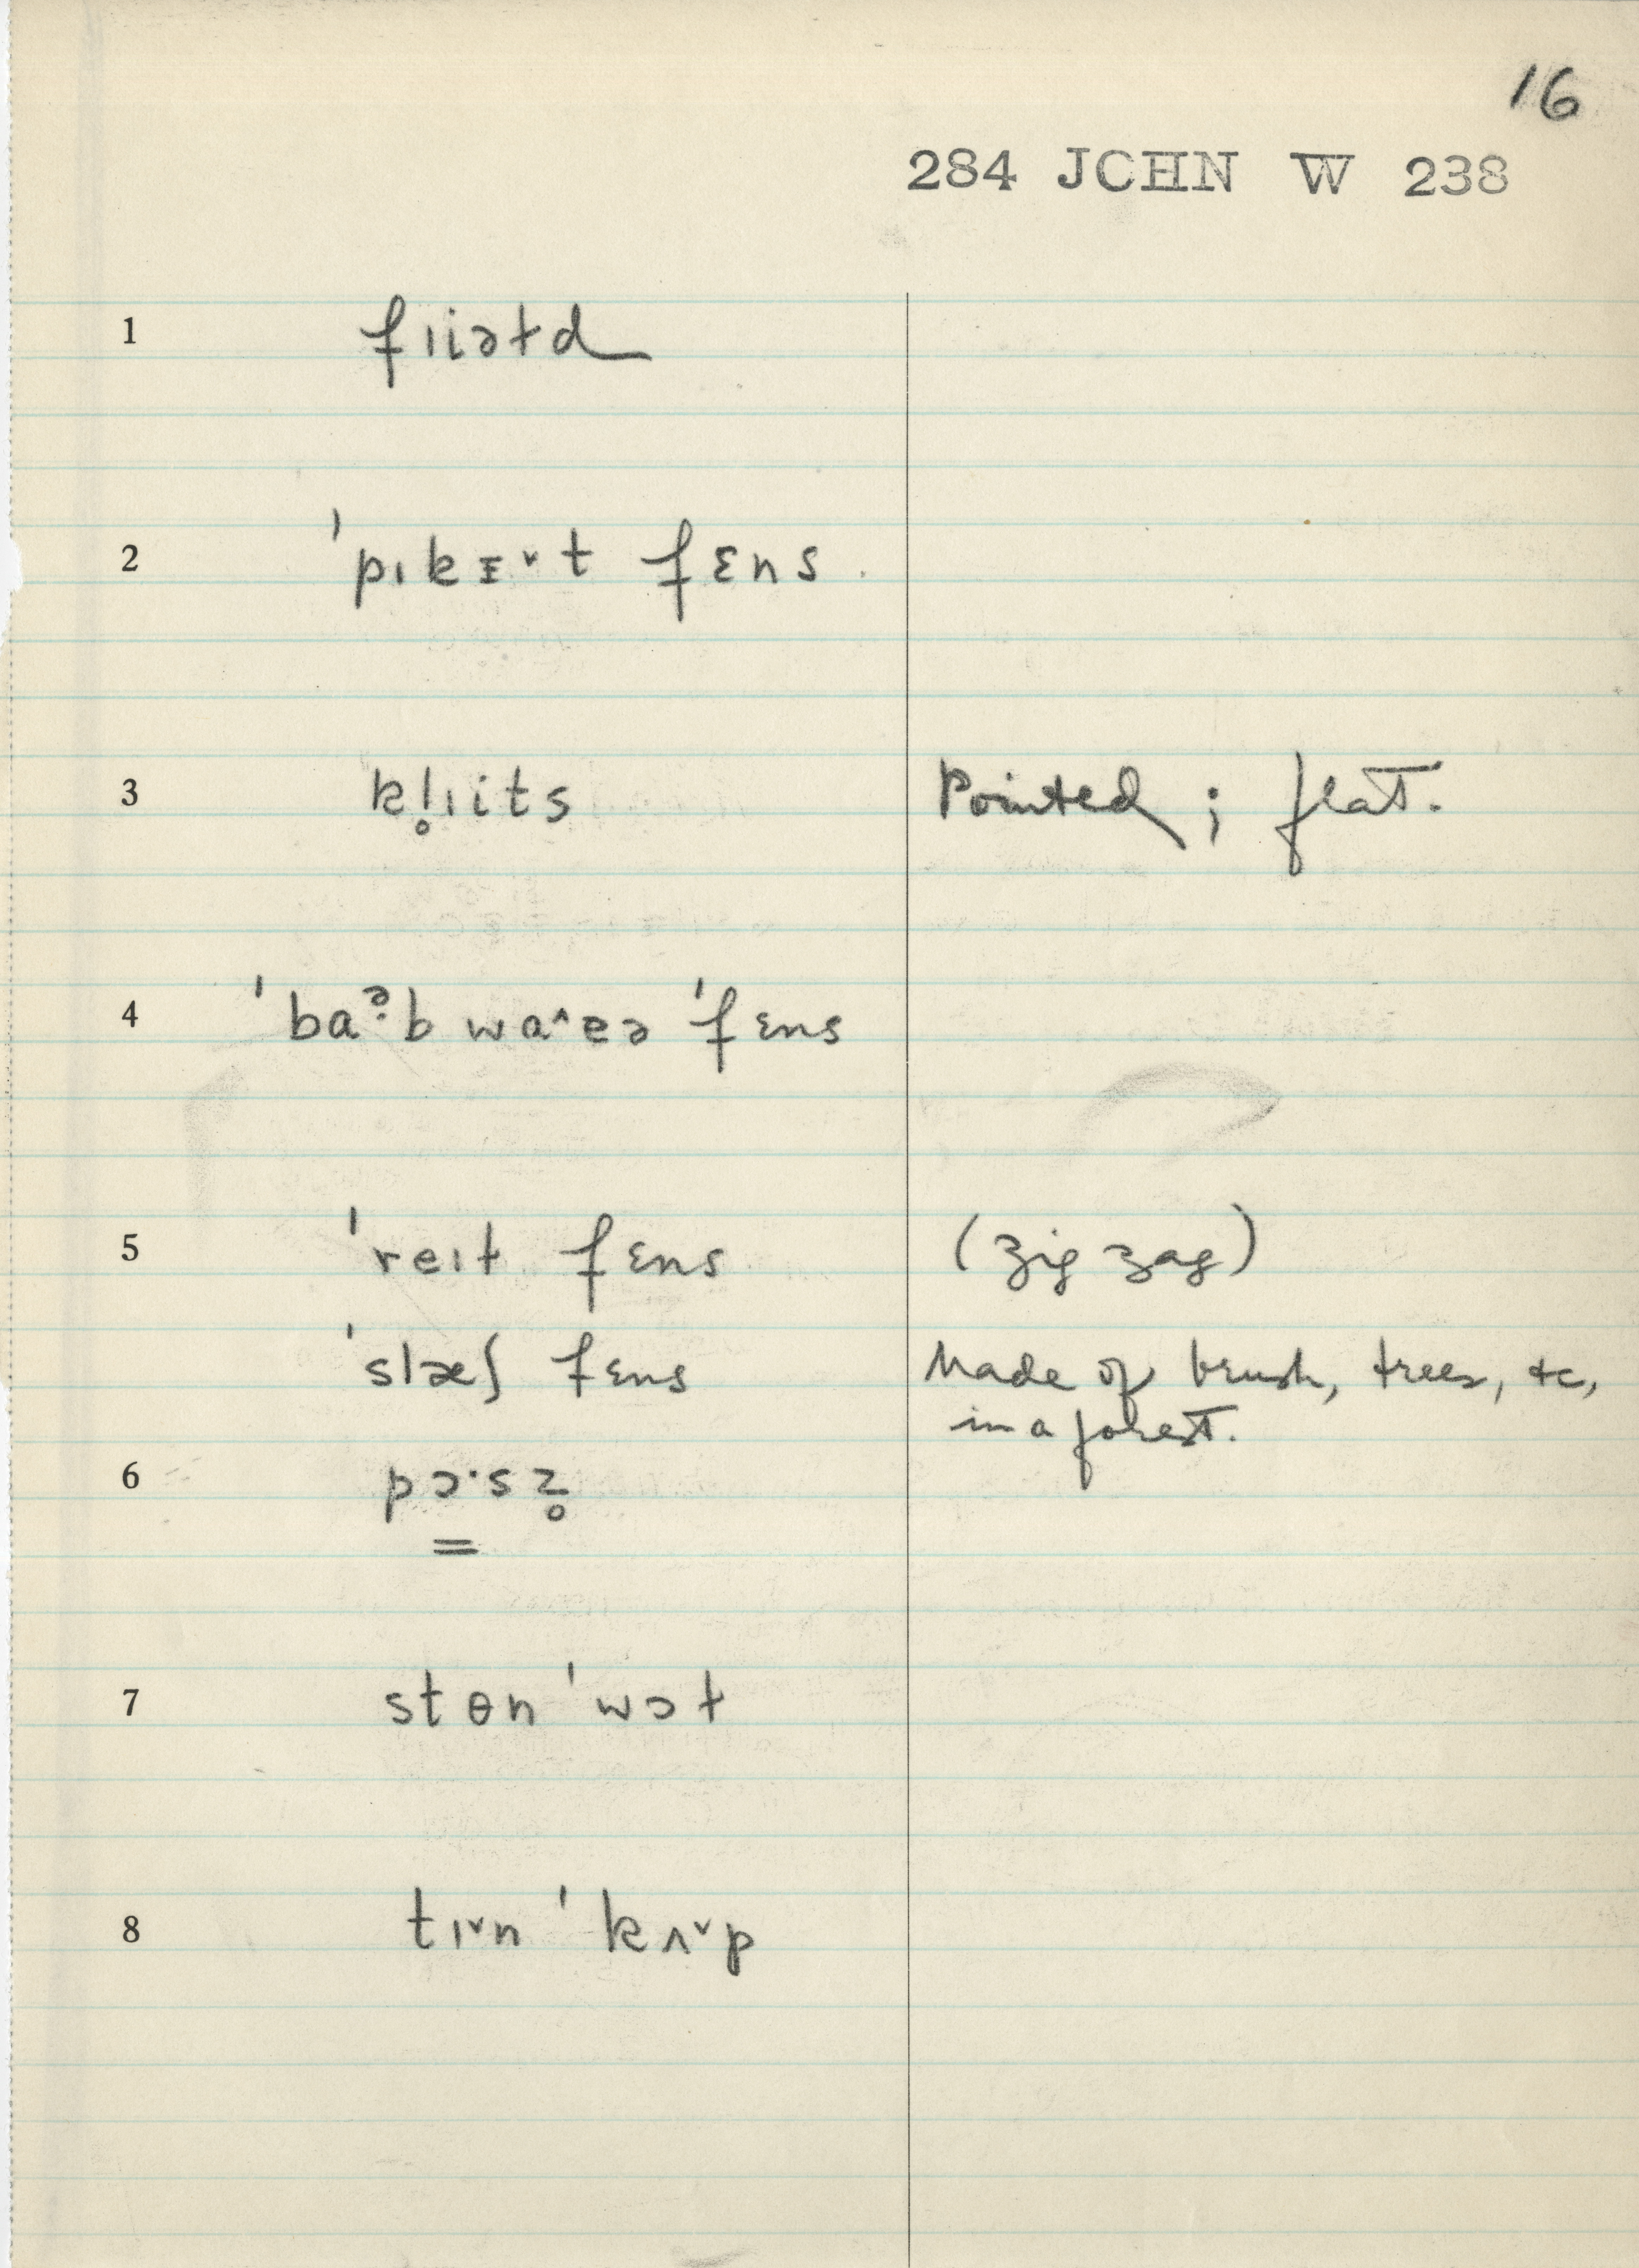 16
284 JOHN W 238
1 fɪiəɫd
2 ˈpɪkᵻ˅t fɛns
3 kl̥ɪits Pointed; flat.
4 ˈbaᵊ̣b wa˄ɐə ˈfɛns
5 ˈreɪɫ fɛns (zig zag)
ˈslæʃ fɛns Made of brush, trees, etc,
in a forest.
6 pɔ·sz̥
7 stɵn ˈwɔɫ
8 tɪ˅n ˈkʌ˅p